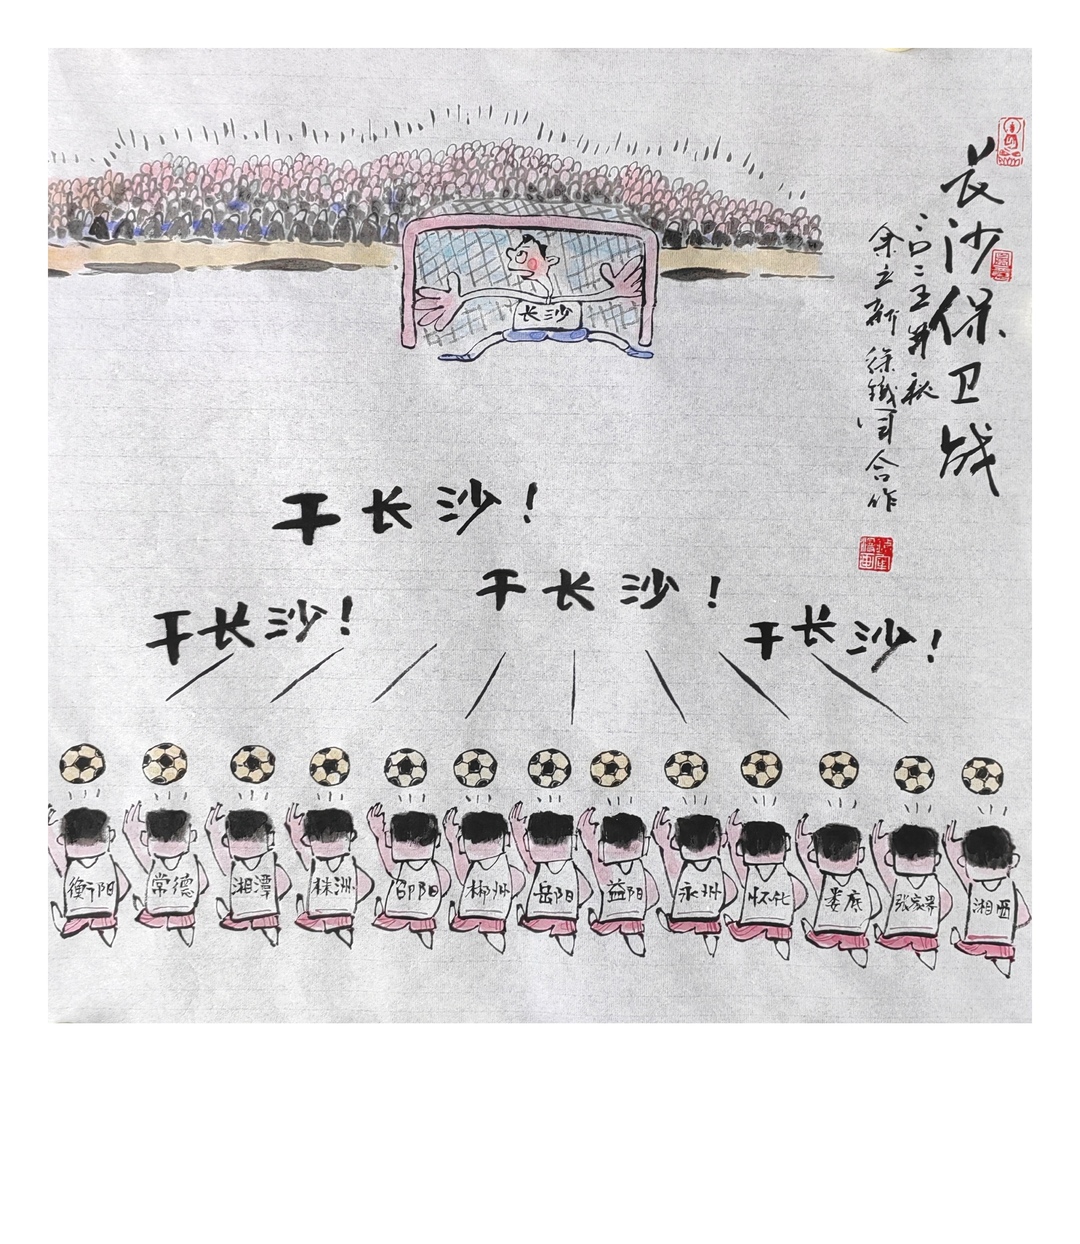 长沙保卫战
二〇二五年秋
余立新 徐铁军合作
长沙
干长沙!
干长沙!
干长沙!
干长沙!
衡阳
常德
湘潭
株洲
邵阳
郴州
岳阳
益阳
永州
怀化
娄底
张家界
湘西